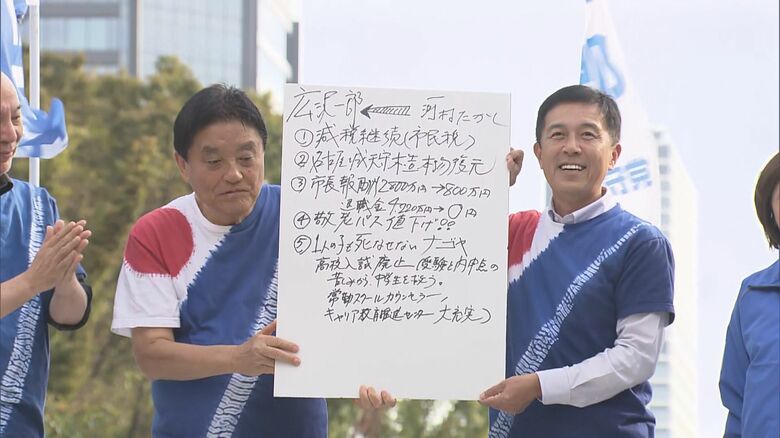 広沢一郎 ← 河村たかし
①減税継続(市民税)
②名古屋城天守木造本物復元
③市長報酬2800万円→800万円
退職金4220万円→0円
④敬老パス値下げ!!
⑤1人の子も死なせないナゴヤ
高校入試廃止(受験と内申点の
苦しみから、中学生を救う。
常勤スクールカウンセラー、
キャリア教育推進センター大充実)